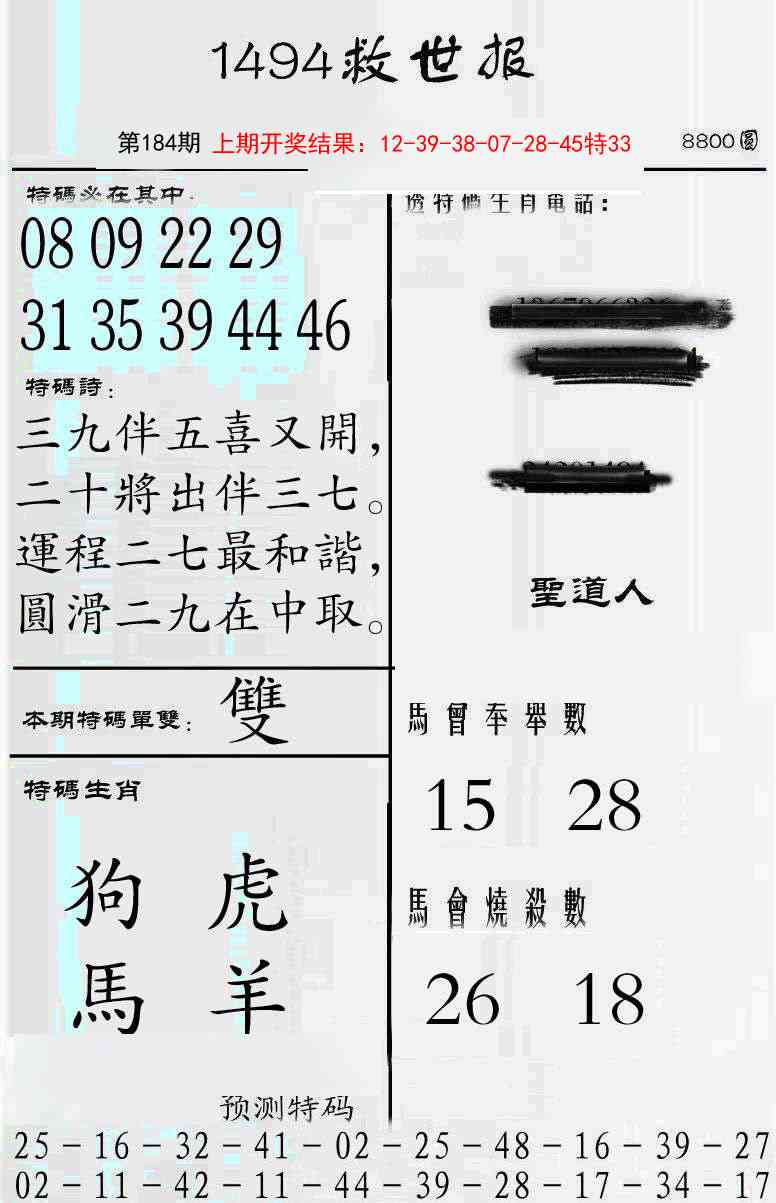 1494救世报
第184期 上期开奖结果：12-39-38-07-28-45特33 8800圓
特碼必在其中：
08 09 22 29
31 35 39 44 46
特碼詩：
三九伴五喜又開，
二十將出伴三七。
運程二七最和諧，
圓滑二九在中取。
本期特碼單雙：雙
特碼生肖
狗 虎
馬 羊
透特碼生肖電話：
聖道人
馬會奉舉數
15 28
馬會燒殺數
26 18
预测特码
25－16－32－41－02－25－48－16－39－27
02－11－42－11－44－39－28－17－34－17